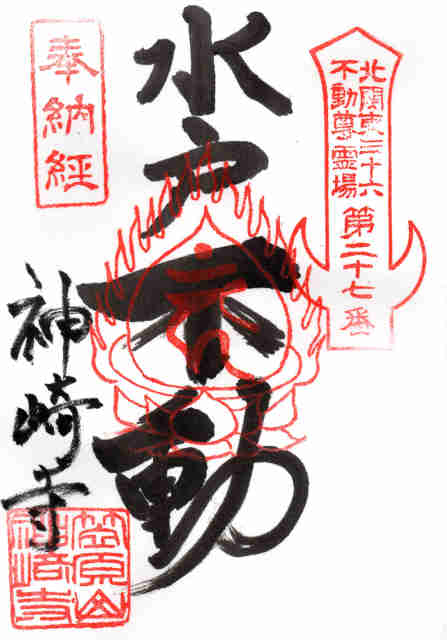 奉納経
水戸不動
北関東三十六
不動尊霊場
第二十七番
神崎寺
笠原山
神崎寺